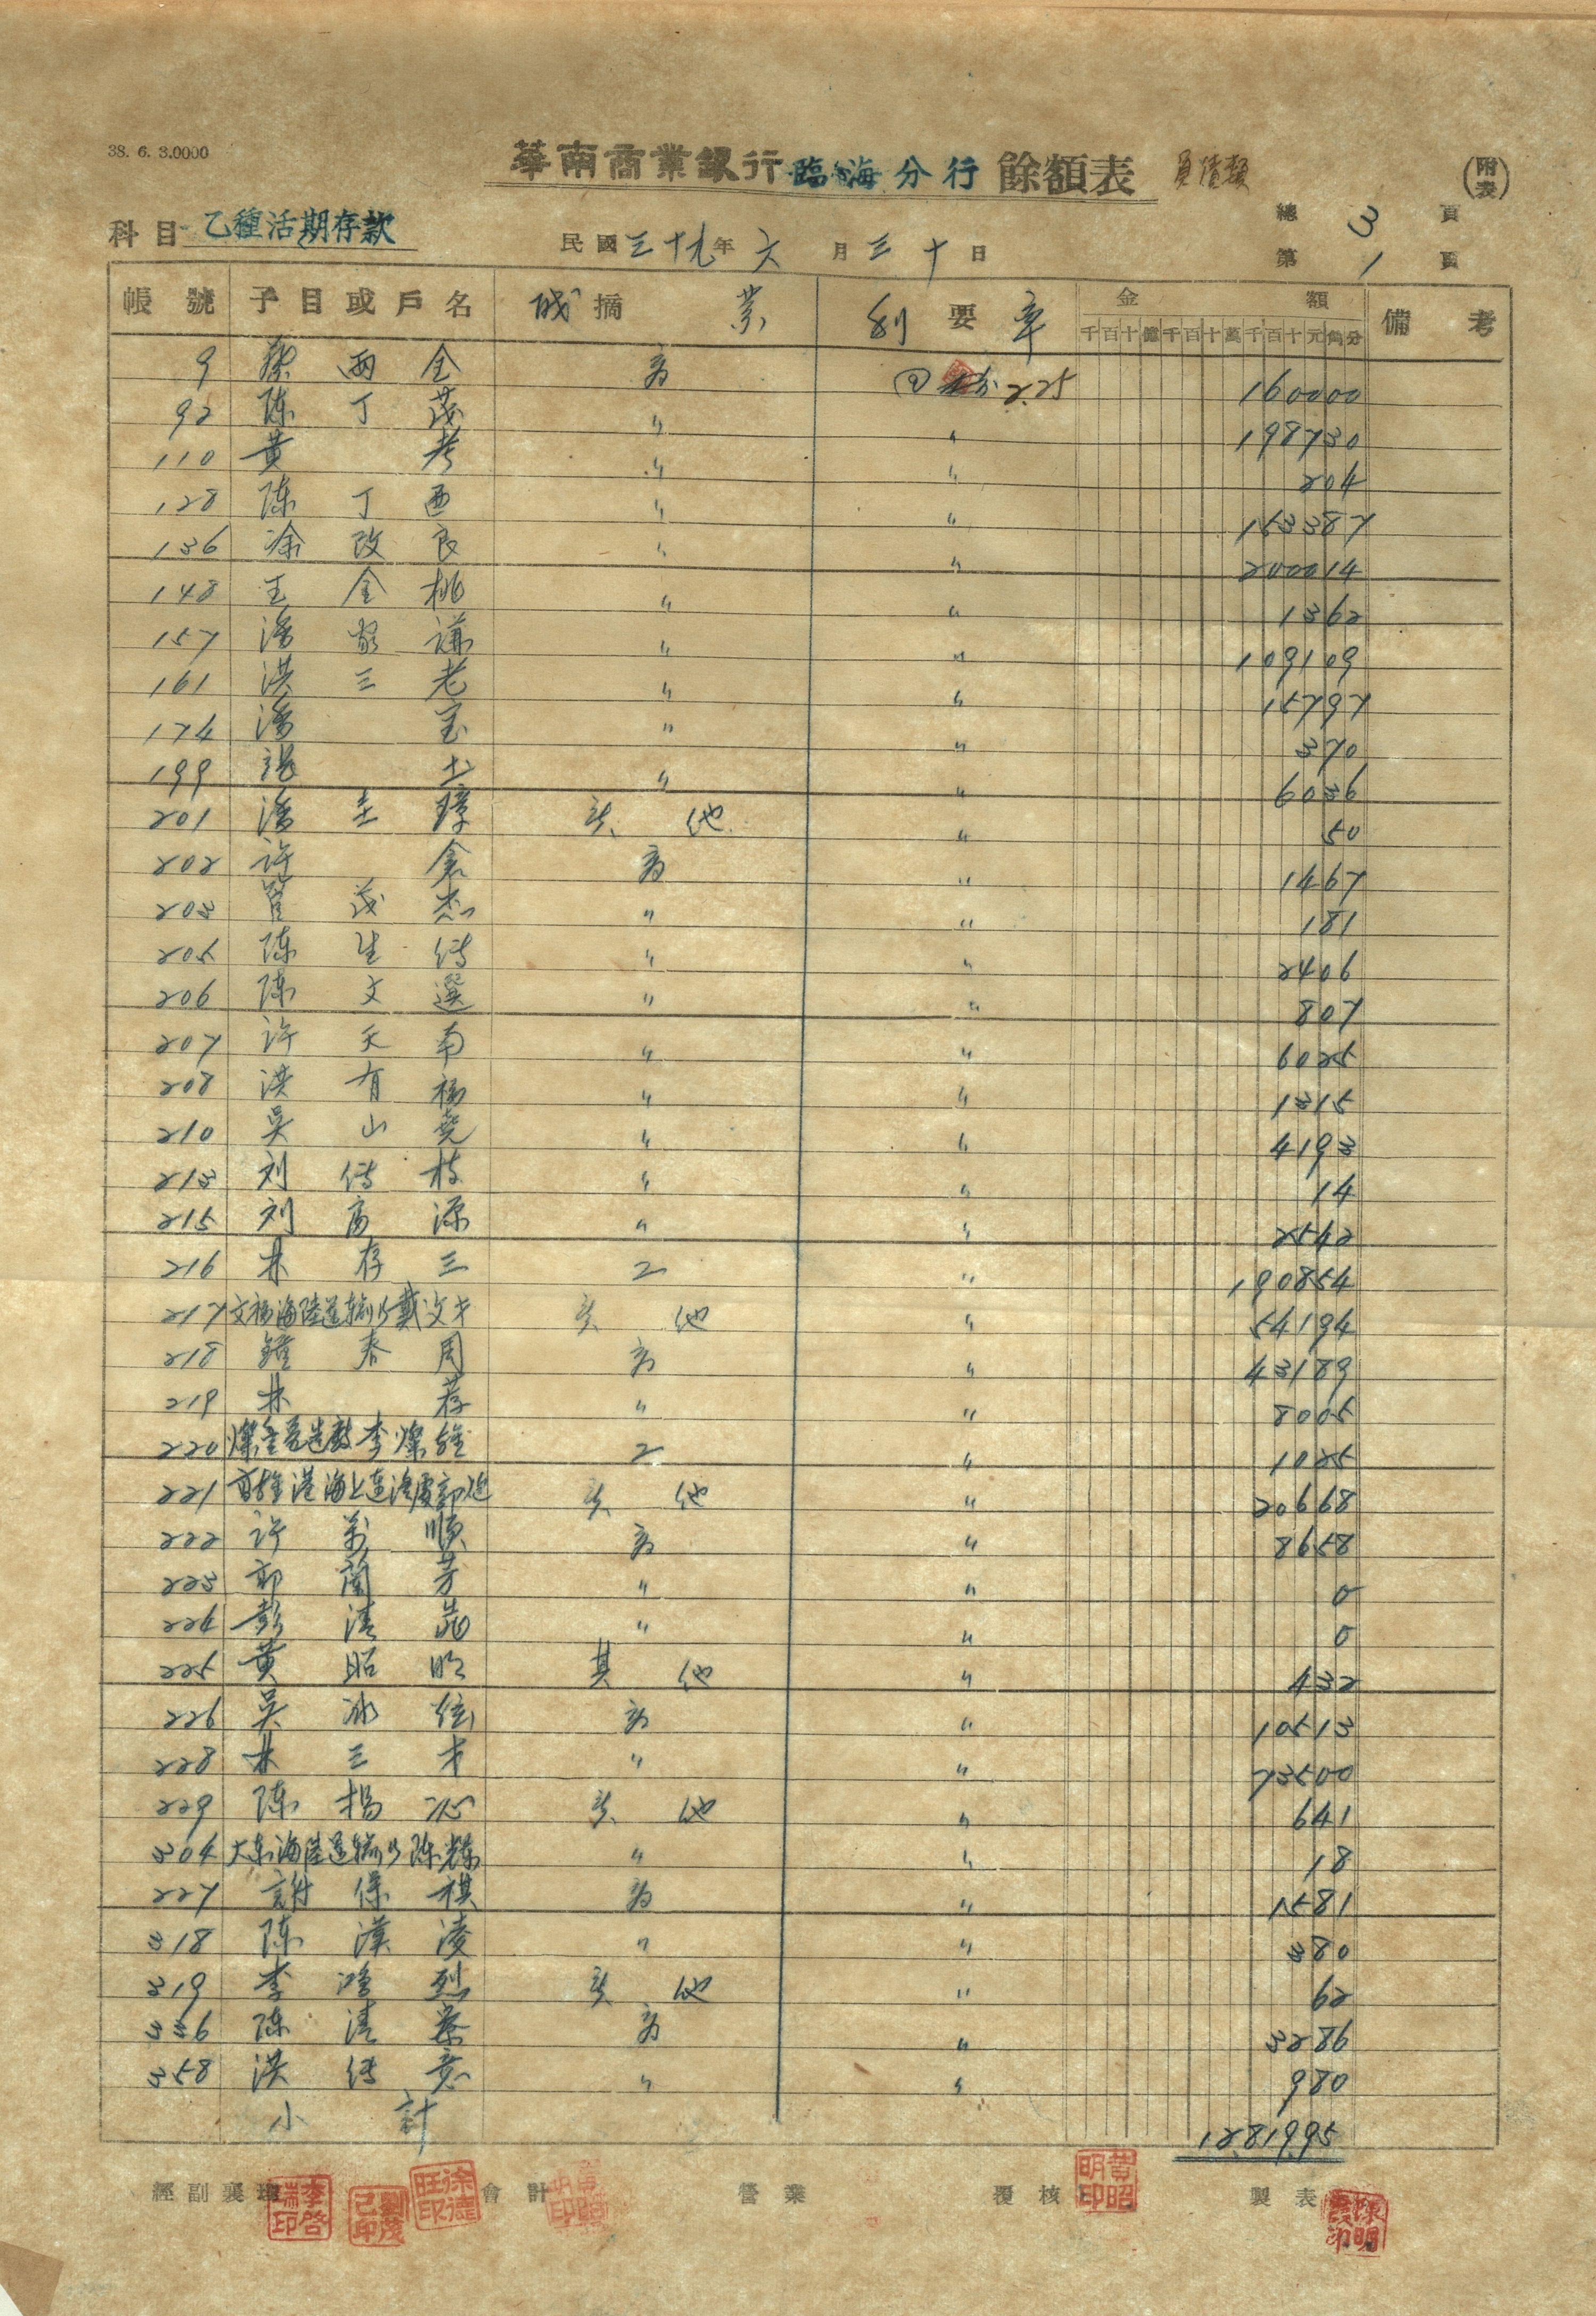 38. 6. 3.0000
華南商業銀行臨海分行 餘額表 負債類 (附表)
科目 乙種活期存款 民國三十九年六月三十日 總3頁
第1頁
帳號 子目或戶名 摘要 職業 利率 金額 備考
千百十億千百十萬千百十元角分
9 蔡両全 商 2.25 160000
92 陳丁茂 〃 〃 198730
110 黃考 〃 〃 204
128 陳丁酉 〃 〃 153387
136 涂改良 〃 〃 200014
148 王金桃 〃 〃 1362
157 潘 謙 〃 〃 109109
161 洪三老 〃 〃 15797
174 潘宝 〃 〃 370
199 土 〃 〃 6036
201 潘 其他 〃 50
202 許倉 商 〃 1467
203 茂杰 〃 〃 181
205 陳生傳 〃 〃 2406
206 陳文選 〃 〃 807
207 許天南 〃 〃 6025
208 洪有福 〃 〃 1315
210 吳山堯 〃 〃 4193
213 刘傳枝 〃 〃 14
215 刘富源 〃 〃 2542
216 林存三 工 〃 190854
217 文福海陸運輸行戴文才 其他 〃 54194
218 鐘春周 商 〃 43189
219 林荐 〃 〃 8005
220 李燦雄 工 〃 1025
221 高雄港海上連絡處郭 其他 〃 20668
222 許萬順 商 〃 8658
223 郭蘭芳 〃 〃 0
224 彭清 〃 〃 0
225 黃昭明 其他 〃 432
226 吳冰 商 〃 10513
228 林三才 〃 〃 73500
229 陳楊沁 其他 〃 641
304 大東海陸運輸行陳 東 〃 〃 18
227 謝保祺 商 〃 1581
318 陳漢凌 〃 〃 380
319 李鴻烈 其他 〃 62
336 陳清 商 〃 3286
358 洪傳意 〃 〃 980
小計 12,819.95
經副襄理 李啓瑞印 劉茂己印 徐德旺印 會計 營業 覆核 黃昭明印 製表 陳明